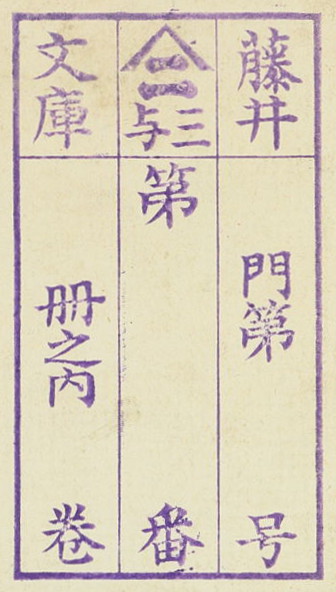 藤井
文庫
三与
門第 号
第 番
冊之内 巻